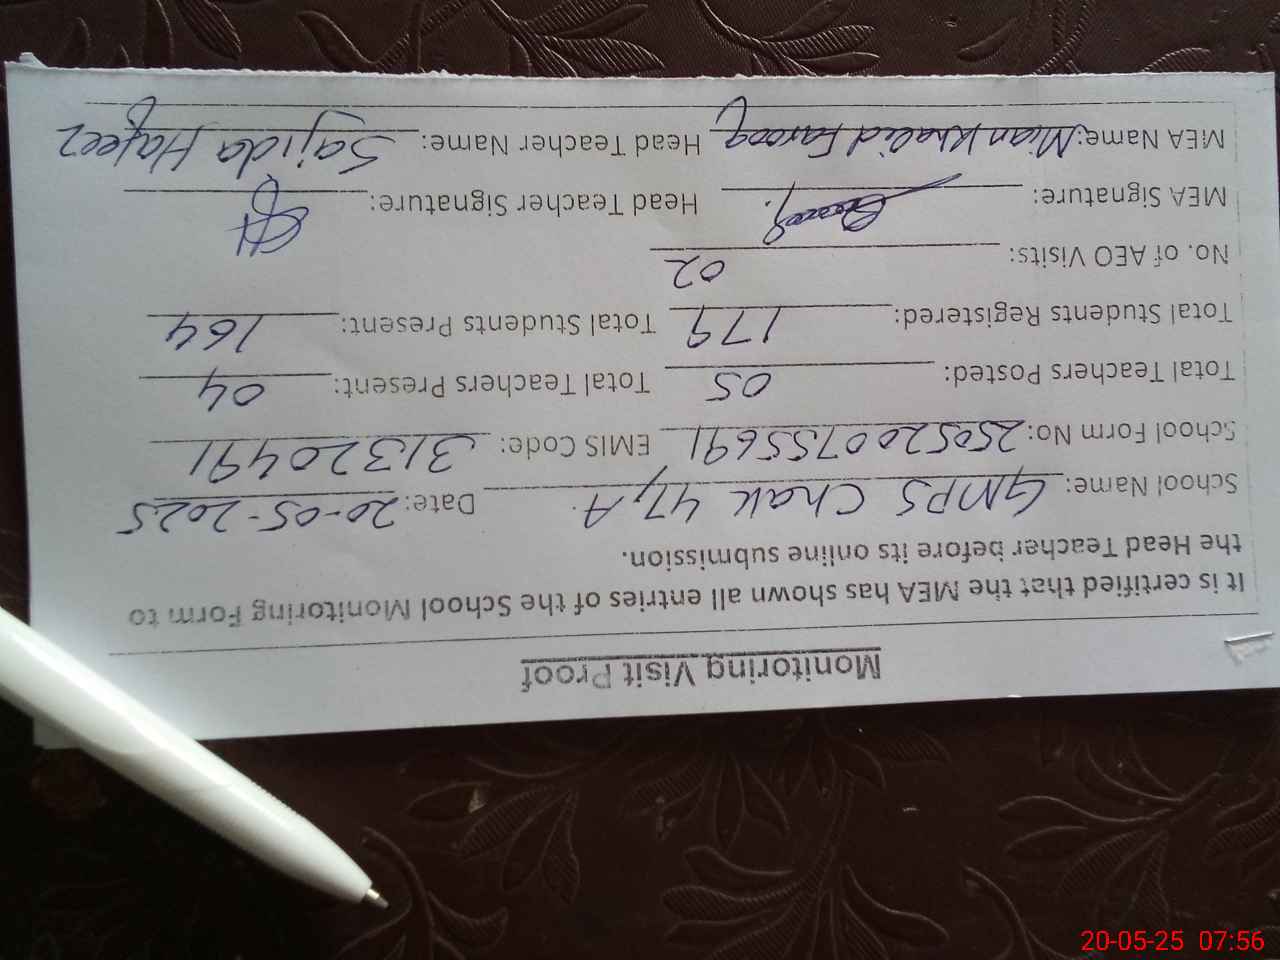 Monitoring Visit Proof
It is certified that the MEA has shown all entries of the School Monitoring Form to
the Head Teacher before its online submission.
School Name: GMPS Chak 47/A Date: 20-05-2025
School Form No: 2505200755691 EMIS Code: 31320491
Total Teachers Posted: 05 Total Teachers Present: 04
Total Students Registered: 179 Total Students Present: 164
No. of AEO Visits: 02
MEA Signature: Head Teacher Signature:
MEA Name: Mian Khalid Farooq Head Teacher Name: Sajida Hafeez
20-05-25 07:56